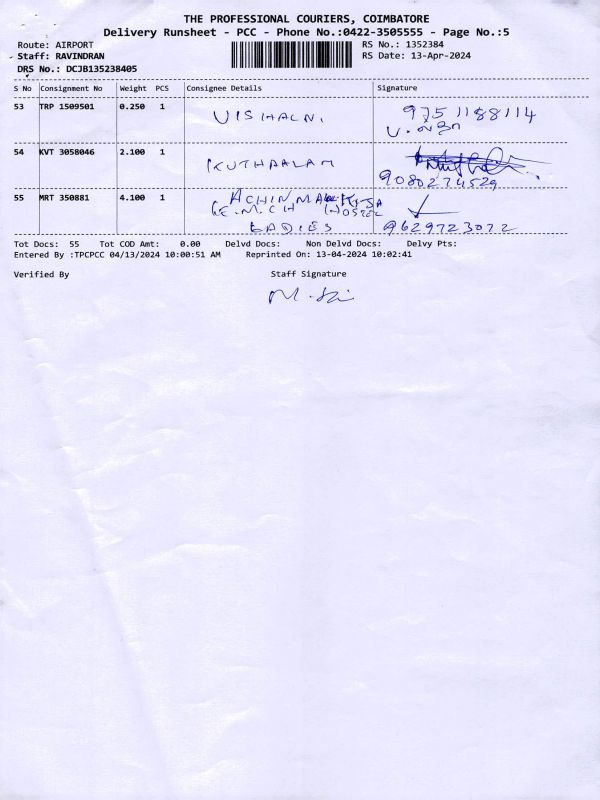 THE PROFESSIONAL COURIERS, COIMBATORE
Delivery Runsheet - PCC - Phone No.:0422-3505555 - Page No.:5
Route: AIRPORT RS No.: 1352384
Staff: RAVINDRAN RS Date: 13-Apr-2024
DRS No.: DCJB135238405
S No Consignment No Weight PCS Consignee Details Signature
53 TRP 1509501 0.250 1 VISHALNI 9751188114
54 KVT 3058046 2.100 1 KUTHAALAM
9080274529
55 MRT 350881 4.100 1
K.M.C.H HOSTEL
LADIES 9629723072
Tot Docs: 55 Tot COD Amt: 0.00 Delvd Docs: Non Delvd Docs: Delvy Pts:
Entered By :TPCPCC 04/13/2024 10:00:51 AM Reprinted On: 13-04-2024 10:02:41
Verified By Staff Signature